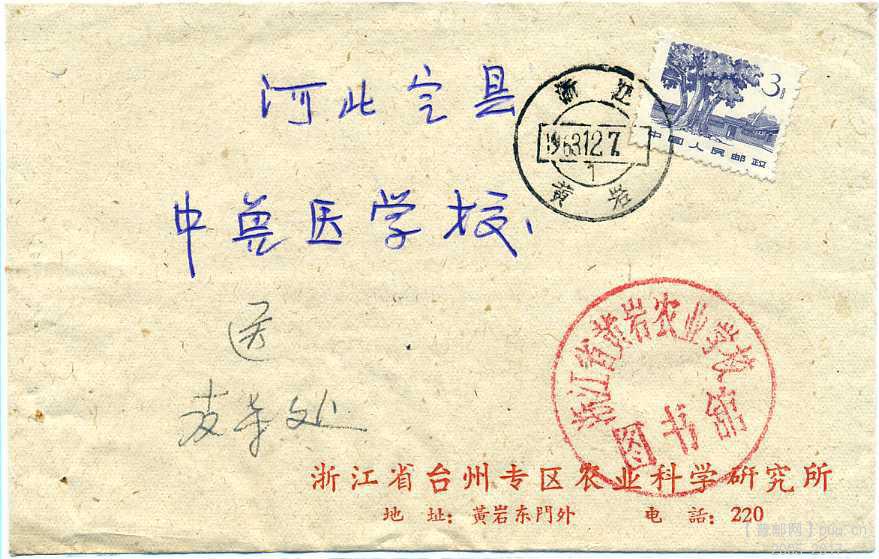 河北定县
中兽医学校
浙江
1963.12.7.
1
黄岩
3分
中国人民邮政
医
教务处
浙江省黄岩农业学校
图书馆
浙江省台州专区农业科学研究所
地址：黄岩东門外 电話：220